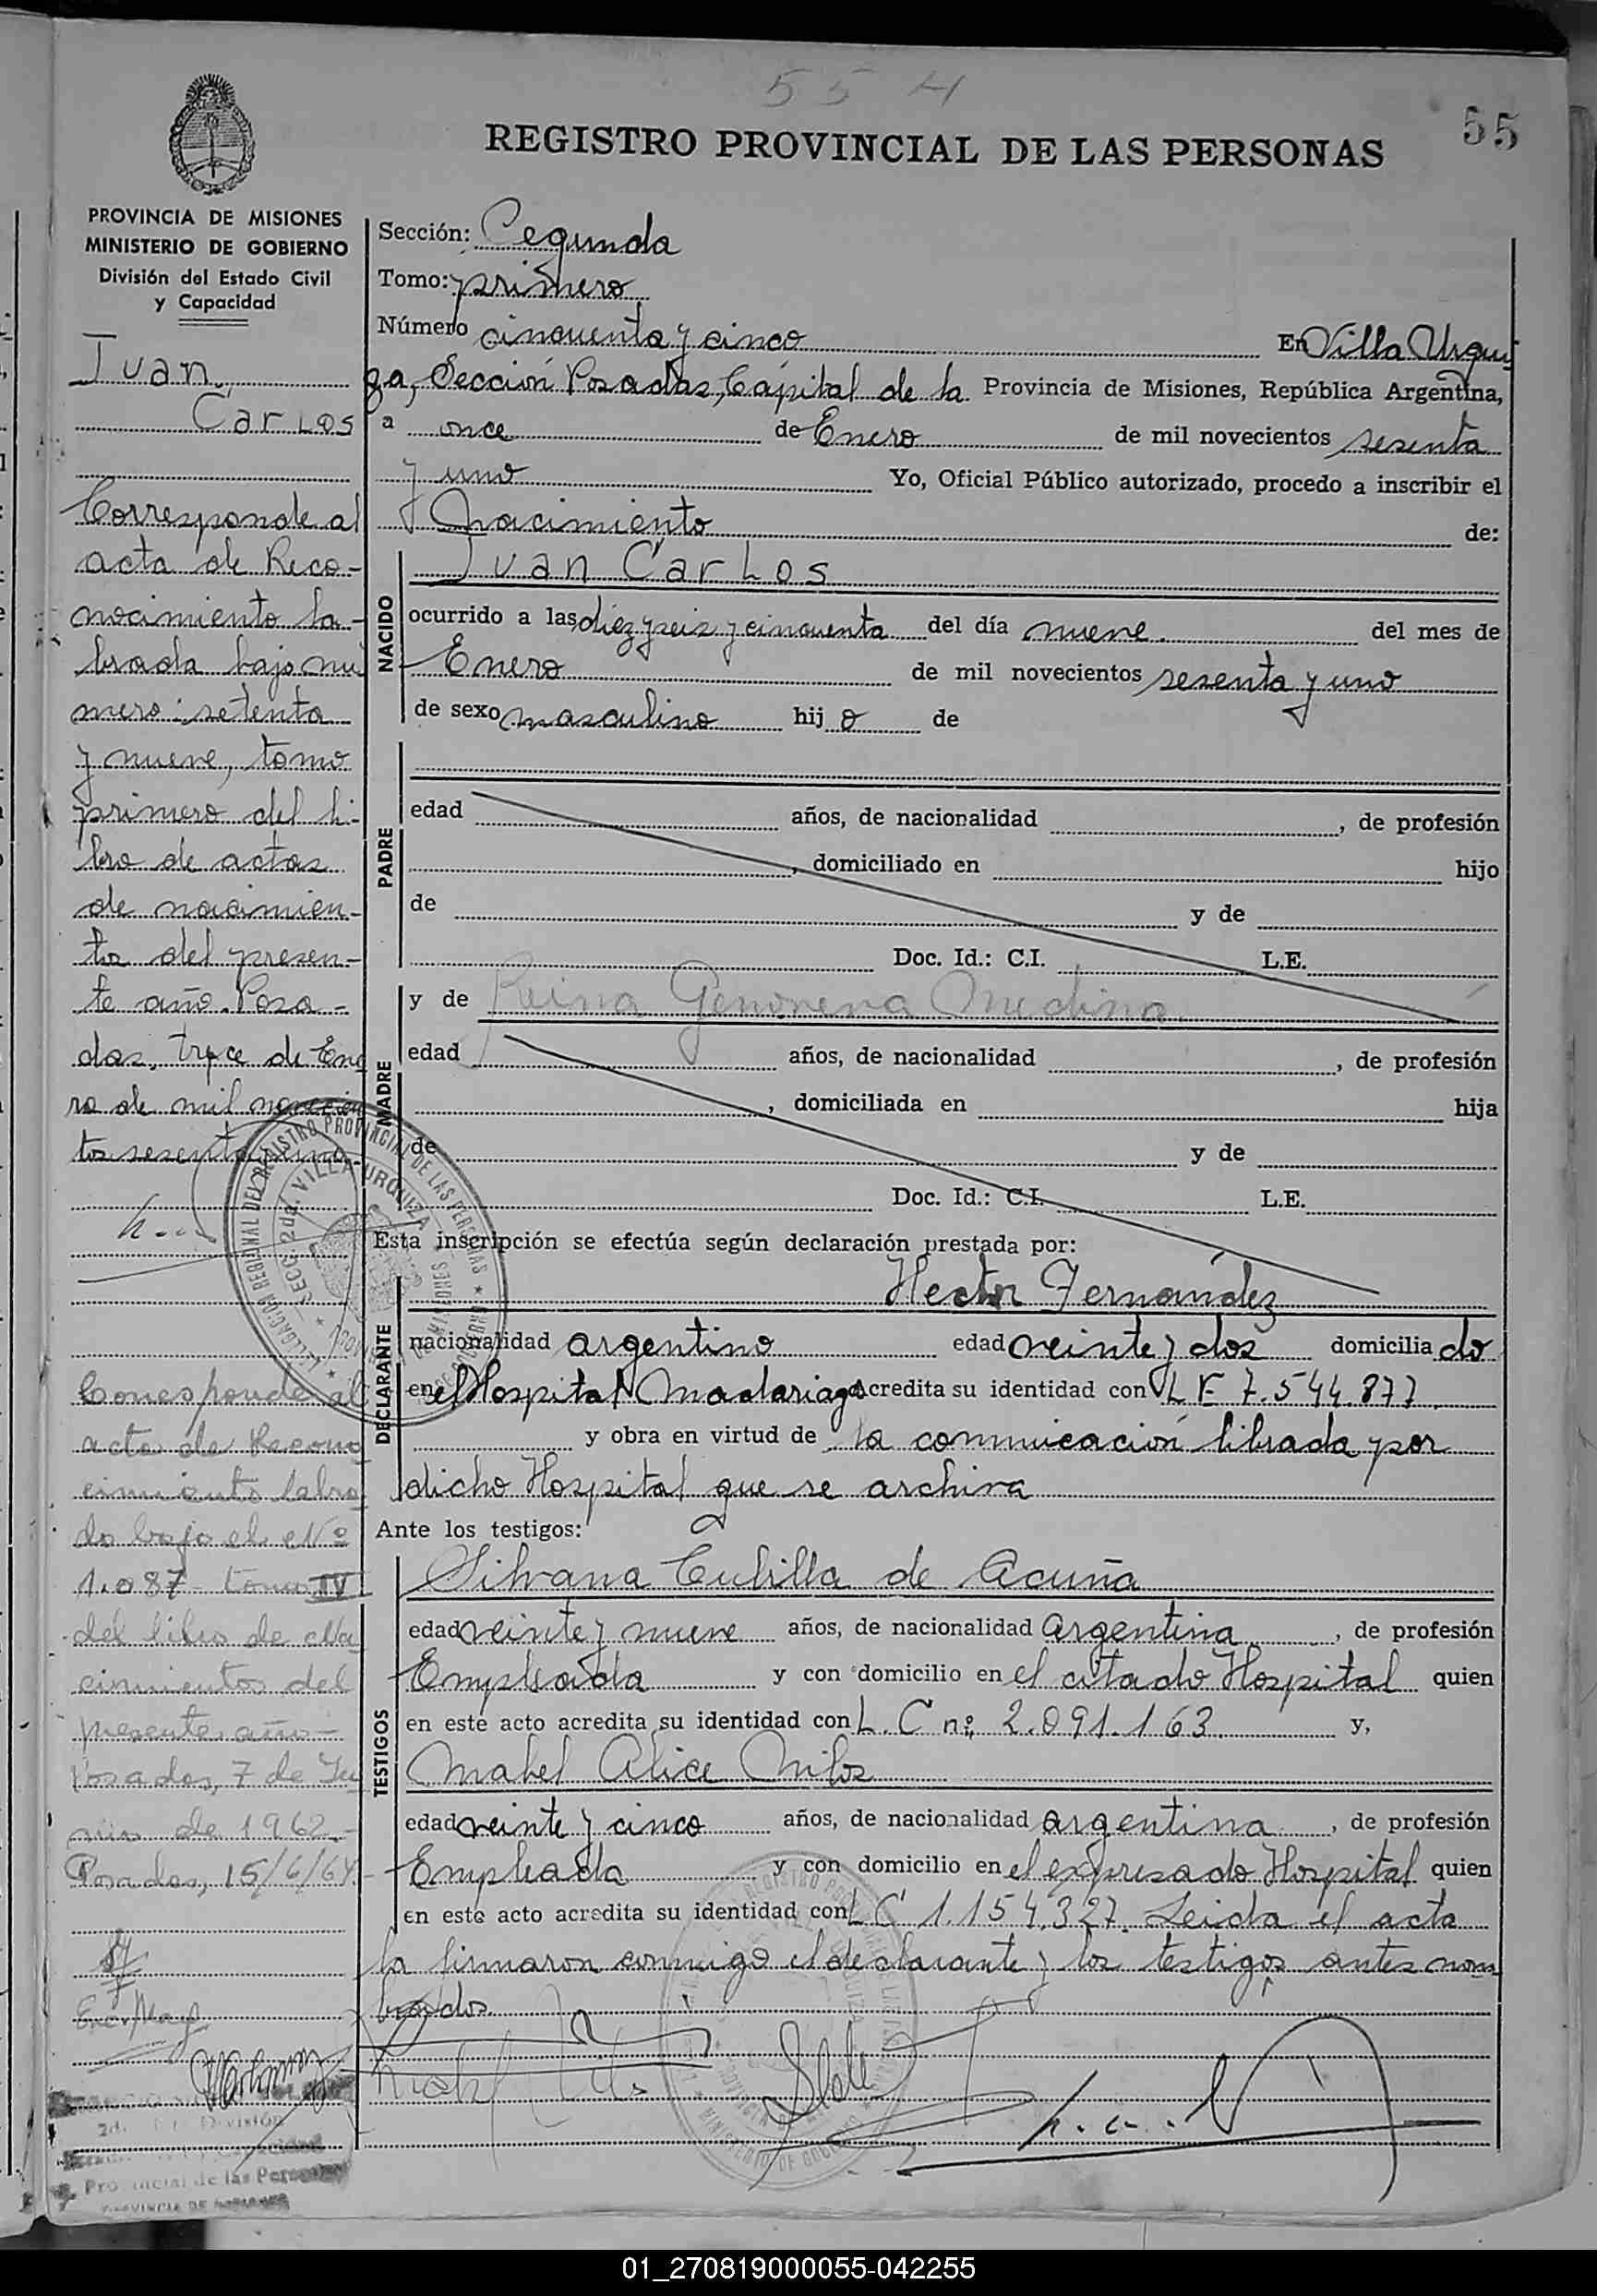 55 H
55
REGISTRO PROVINCIAL DE LAS PERSONAS
PROVINCIA DE MISIONES
MINISTERIO DE GOBIERNO
División del Estado Civil
y Capacidad
Juan
Carlos
Corresponde al
acta de Reco-
nocimiento la-
brada bajo nú
mero: setenta
y nueve, tomo
primero del li-
bro de actas
de nacimien-
to del presen-
te año. Posa-
das, trece de Ene
ro de mil novecien
tos sesenta y uno
Corresponde al
acta de Recono
cimiento labra
do bajo el Nº
1.087 - tomo IV
del libro de Na
cimientos del
presente año -
Posadas, 7 de Ju
nio de 1962.-
Posadas, 15/6/64.-
Sección: Cegunda
Tomo: primero
Número cincuenta y cinco En Villa Urqui
za, Sección Posadas, Cápital de la Provincia de Misiones, República Argentina,
a once de Enero de mil novecientos sesenta
y uno Yo, Oficial Público autorizado, procedo a inscribir el
Nacimiento de:
NACIDO
Juan Carlos
ocurrido a las diez y seis y cincuenta del día nueve. del mes de
Enero de mil novecientos sesenta y uno
de sexo masculino hijo de
PADRE
edad años, de nacionalidad , de profesión
, domiciliado en hijo
de y de
Doc. Id.: C.I. L.E.
MADRE
y de Reina Genoveva Medina
edad años, de nacionalidad , de profesión
, domiciliada en hija
de y de
Doc. Id.: C.I. L.E.
Esta inscripción se efectúa según declaración prestada por:
DECLARANTE
Hector Fernández
nacionalidad argentino edad veinte y dos domiciliado
en el Hospital Madariaga acredita su identidad con L E 7.544.877
y obra en virtud de la comunicación librada por
dicho Hospital que se archiva
Ante los testigos:
TESTIGOS
Silvana Cubilla de Acuña
edad veinte y nueve años, de nacionalidad Argentina, de profesión
Empleada y con domicilio en el citado Hospital quien
en este acto acredita su identidad con L. C nº 2.091.163 y,
Mabel Alice Milos
edad veinte y cinco años, de nacionalidad argentina, de profesión
Empleada y con domicilio en el expresado Hospital quien
en este acto acredita su identidad con L C 1.154.327. Leida el acta
la firmaron conmigo el declarante y los testigos antes nom
brados.
DELEGACION REGIONAL DEL REGISTRO PROVINCIAL DE LAS PERSONAS
SECC. 2da. VILLA URQUIZA
2da. División
Provincial de las Personas
PROVINCIA DE MISIONES
01_270819000055-042255